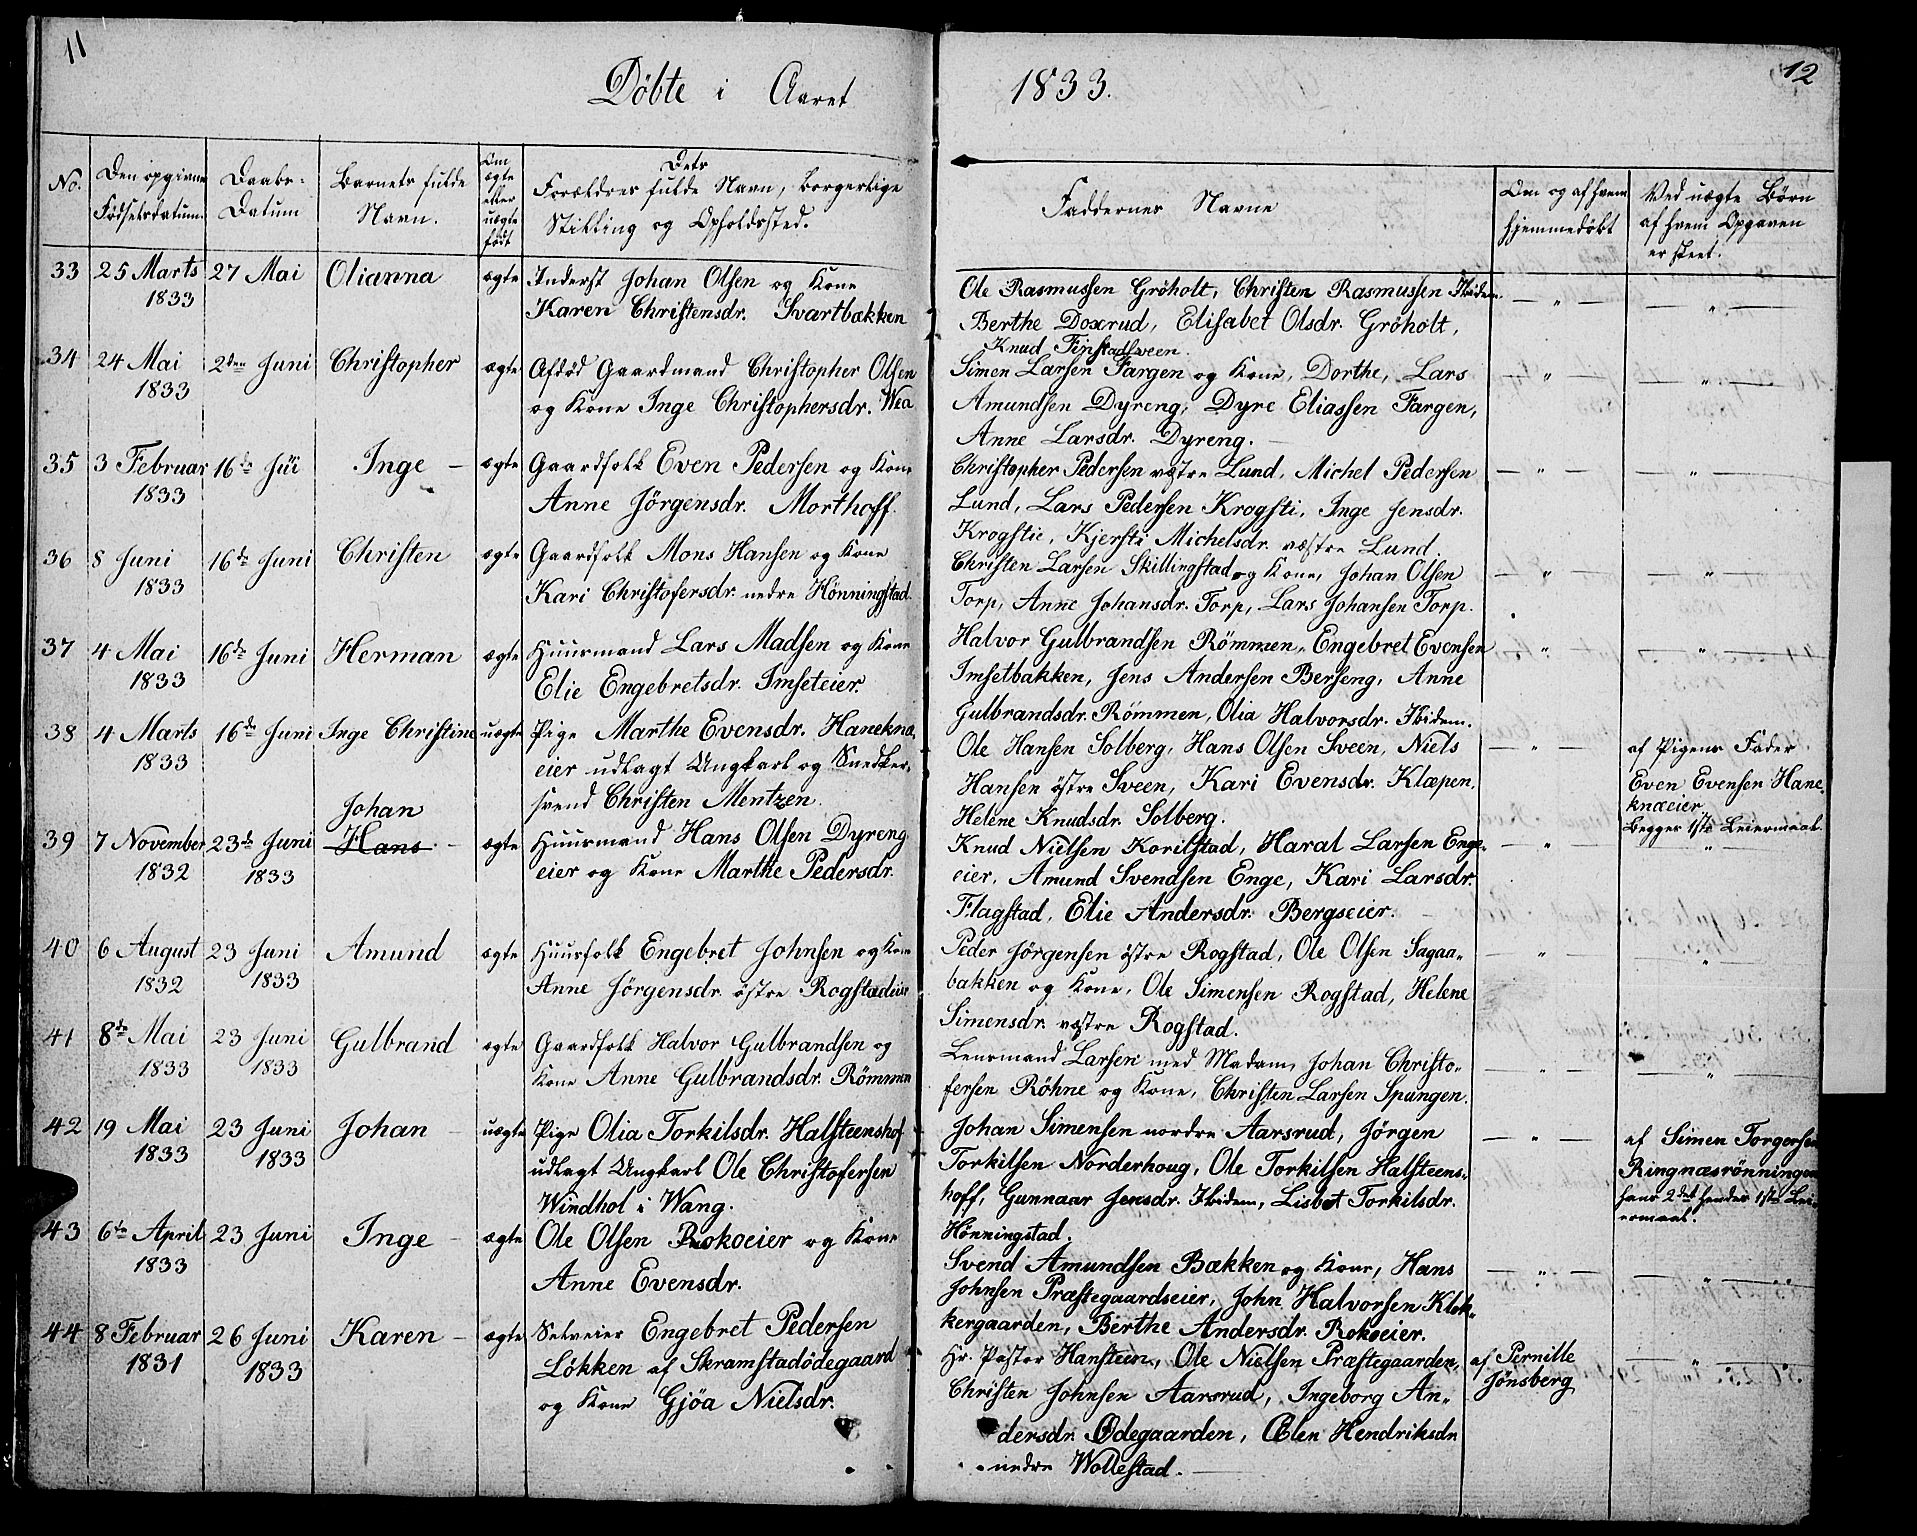 11
Döbte i Aaret
1833.
12
No.
Den opgivne
Födselsdatum.
Daabs-
Datum
Barnets fulde
Navn.
Om
ægte
eller
uægte
født
Dets
Forældres fulde Navn, borgerlige
Stilling og Opholdssted.
Faddernes Navne
Om og af hvem
hjemmedøbt
Ved uægte Børn
af hvem Opgaven
er skeet.
33 25 Marts 27 Mai Olianna ægte Inderst Johan Olsen og Kone
1833 Karen Christensdr. Svartbækken
Ole Rasmussen Gröholt, Christen Rasmussen Ibidem.
Berthe Doxrud, Elisabet Olsdr. Gröholt,
Knud Finstadsveen.
34 24 Mai 2den Juni Christopher ægte Afdød Gaardmand Christopher Olsen
1833 og Kone Inge Christophersdr. Wea
Simen Larsen Fargen og Kone, Dorthe, Lars
Amundsen Dyreng, Dyre Eliassen Fargen,
Anne Larsdr. Dyreng.
35 3 Februar 16de Jüi Inge ægte Gaardfolk Even Pedersen og Kone
1833 Anne Jörgensdr. Morthoff.
Christopher Pedersen væstre Lund, Michel Pedersen
Lund, Lars Pedersen Krogsti, Inge Jensdr.
Krogstie, Kjersti Michelsdr. væstre Lund.
36 8 Juni 16de Juni Christen ægte Gaardfolk Mons Hansen og Kone
1833 Kari Christofersdr. nedre Hönningstad.
Christen Larsen Skillingstad og Kone, Johan Olsen
Torp, Anne Johansdr. Torp, Lars Johansen Torp.
37 4 Mai 16de Juni Herman ægte Huusmand Lars Madsen og Kone
1833 Elie Engebretsdr. Imseteier.
Halvor Gulbrandsen Römmen, Engebret Evensen
Imsetbakken, Jens Andersen Berseng, Anne
Gulbrandsdr. Römmen, Olia Halvorsdr. Ibidem.
38 4 Marts 16de Juni Inge Christine uægte Pige Marthe Evensdr. Haneknæ
1833 eier udlagt Ungkarl og Snedker-
svend Christen Mentzen.
Ole Hansen Solberg, Hans Olsen Sveen, Niels
Hansen östre Sveen, Kari Evensdr. Klæpen,
Helene Knudsdr. Solberg.
af Pigens Fader
Even Evensen Hane-
knæeier
Begges 1ste Leiermaal.
Johan
39 7 November 23de Juni Hans ægte Huusmand Hans Olsen Dyreng
1832 1833 eier og Kone Marthe Pedersdr.
Knud Nielsen Korilstad, Haral Larsen Enge-
eier, Amund Svendsen Enge, Kari Larsdr.
Flagstad, Elie Andersdr. Bergseier.
40 6 August 23 Juni Amund ægte Huusfolk Engebret Johnsen og Kone
1832 1833 Anne Jörgensdr. östre Rogstadeier
Peder Jörgensen östre Rogstad, Ole Olsen Sagaa-
bakken og Kone, Ole Simensen Rogstad, Helene
Simensdr. væstre Rogstad.
41 8de Mai 23 Juni Gulbrand ægte Gaardfolk Halvor Gulbrandsen og
1833 1833 Kone Anne Gulbrandsdr. Römmen
Lensmand Larsen med Madam, Johan Christo-
fersen Röhne og Kone, Christen Larsen Spangen.
42 19 Mai 23 Juni Johan uægte Pige Olia Torkilsdr. Halsteenshof
1833 1833 udlagt Ungkarl Ole Christofersen
Windhol i Wang.
Johan Simensen nordre Aarsrud, Jörgen
Torkilsen Norderhoug, Ole Torkilsen Halsteens-
hoff, Gunnaar Jensdr. Ibidem, Lisbet Torkilsdr.
Hönningstad.
af Simen Torgersen
Ringnæsrönningen
hans 2det hendes 1ste Lei-
ermaal.
43 6te April 23 Juni Inge ægte Ole Olsen Rokoeier og Kone
1833 Anne Evensdr.
Svend Amundsen Bækken og Kone, Hans
Johnsen Præstegaardseier, John Halvorsen Klok-
kergaarden, Berthe Andersdr. Rokoeier.
44 8 Februar 26 Juni Karen ægte Selveier Engebret Pedersen
1831 1833 Lökken af Skramstadödegaard
og Kone Gjöa Nielsdr.
Hr. Pastor Hansteen, Ole Nielsen Præstegaarden,
Christen Johnsen Aarsrud, Ingeborg An-
dersdr. Ödegaarden, Olen Hendriksdr.
nedre Wollestad.
af Pernille
Jönsberg